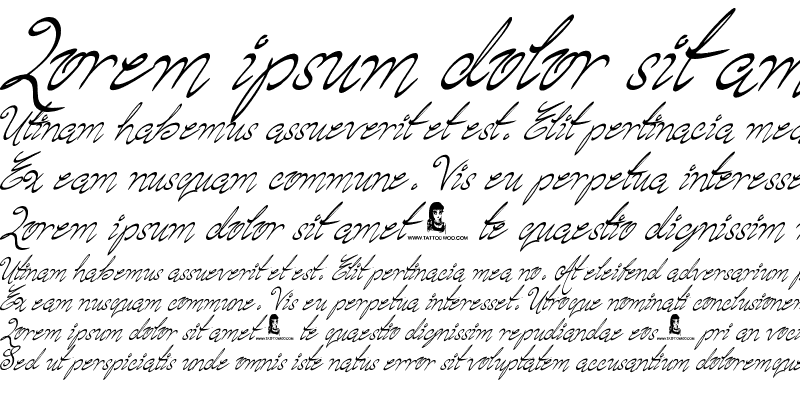 Lorem ipsum dolor sit am
Utinam habemus assueverit et est. Elit pertinacia mea
Ex eam nusquam commune. Vis eu perpetua interesse
Lorem ipsum dolor sit amet WWW.TATTOOWOO.COM te quaestio dignissim
Utinam habemus assueverit et est. Elit pertinacia mea no. At eleifend adversarium p
Ex eam nusquam commune. Vis eu perpetua interesset. Utroque nominati conclusionem
Lorem ipsum dolor sit amet WWW.TATTOOWOO.COM te quaestio dignissim repudiandae eos WWW.TATTOOWOO.COM pri an voci
Sed ut perspiciatis unde omnis iste natus error sit voluptatem accusantium doloremque